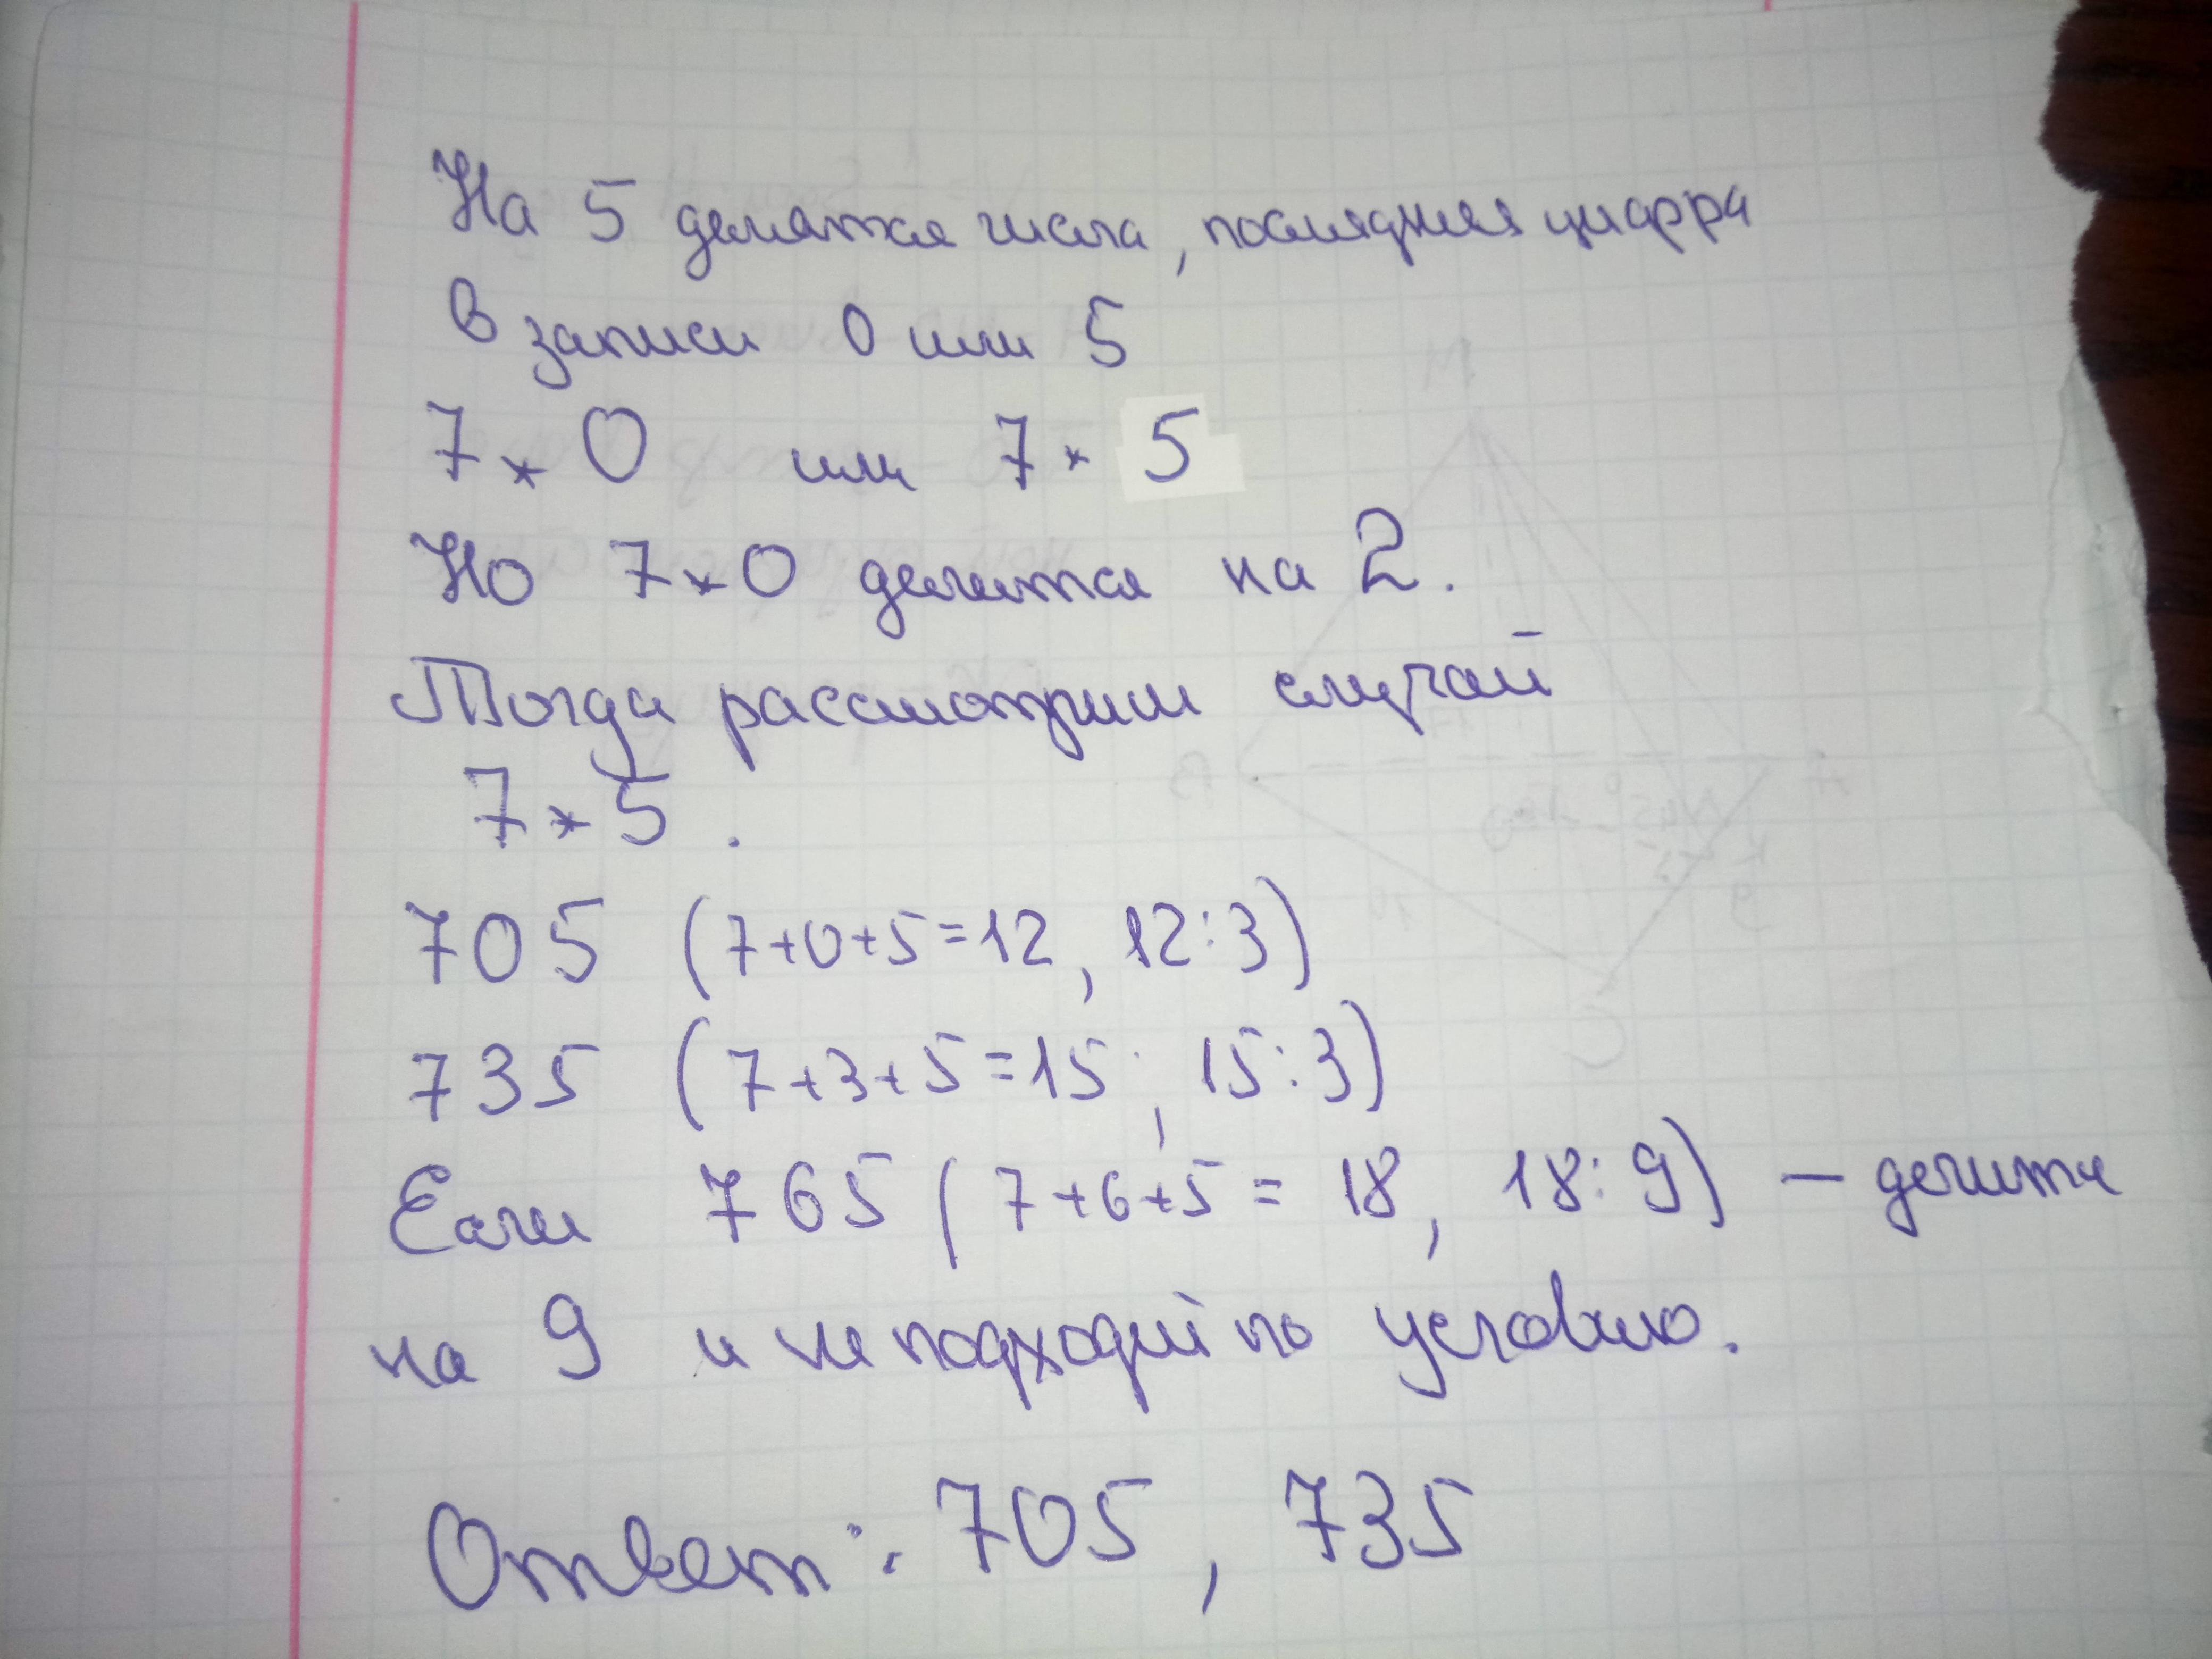 На 5 делятся числа, последняя цифра
в записи 0 или 5
7*0 или 7*5
Но 7*0 делится на 2.
Тогда рассмотрим случай
7*5.
705 (7+0+5=12, 12:3)
735 (7+3+5=15, 15:3)
Если 765 (7+6+5=18, 18:9) – делится
на 9 и не подходит по условию.
Ответ: 705, 735